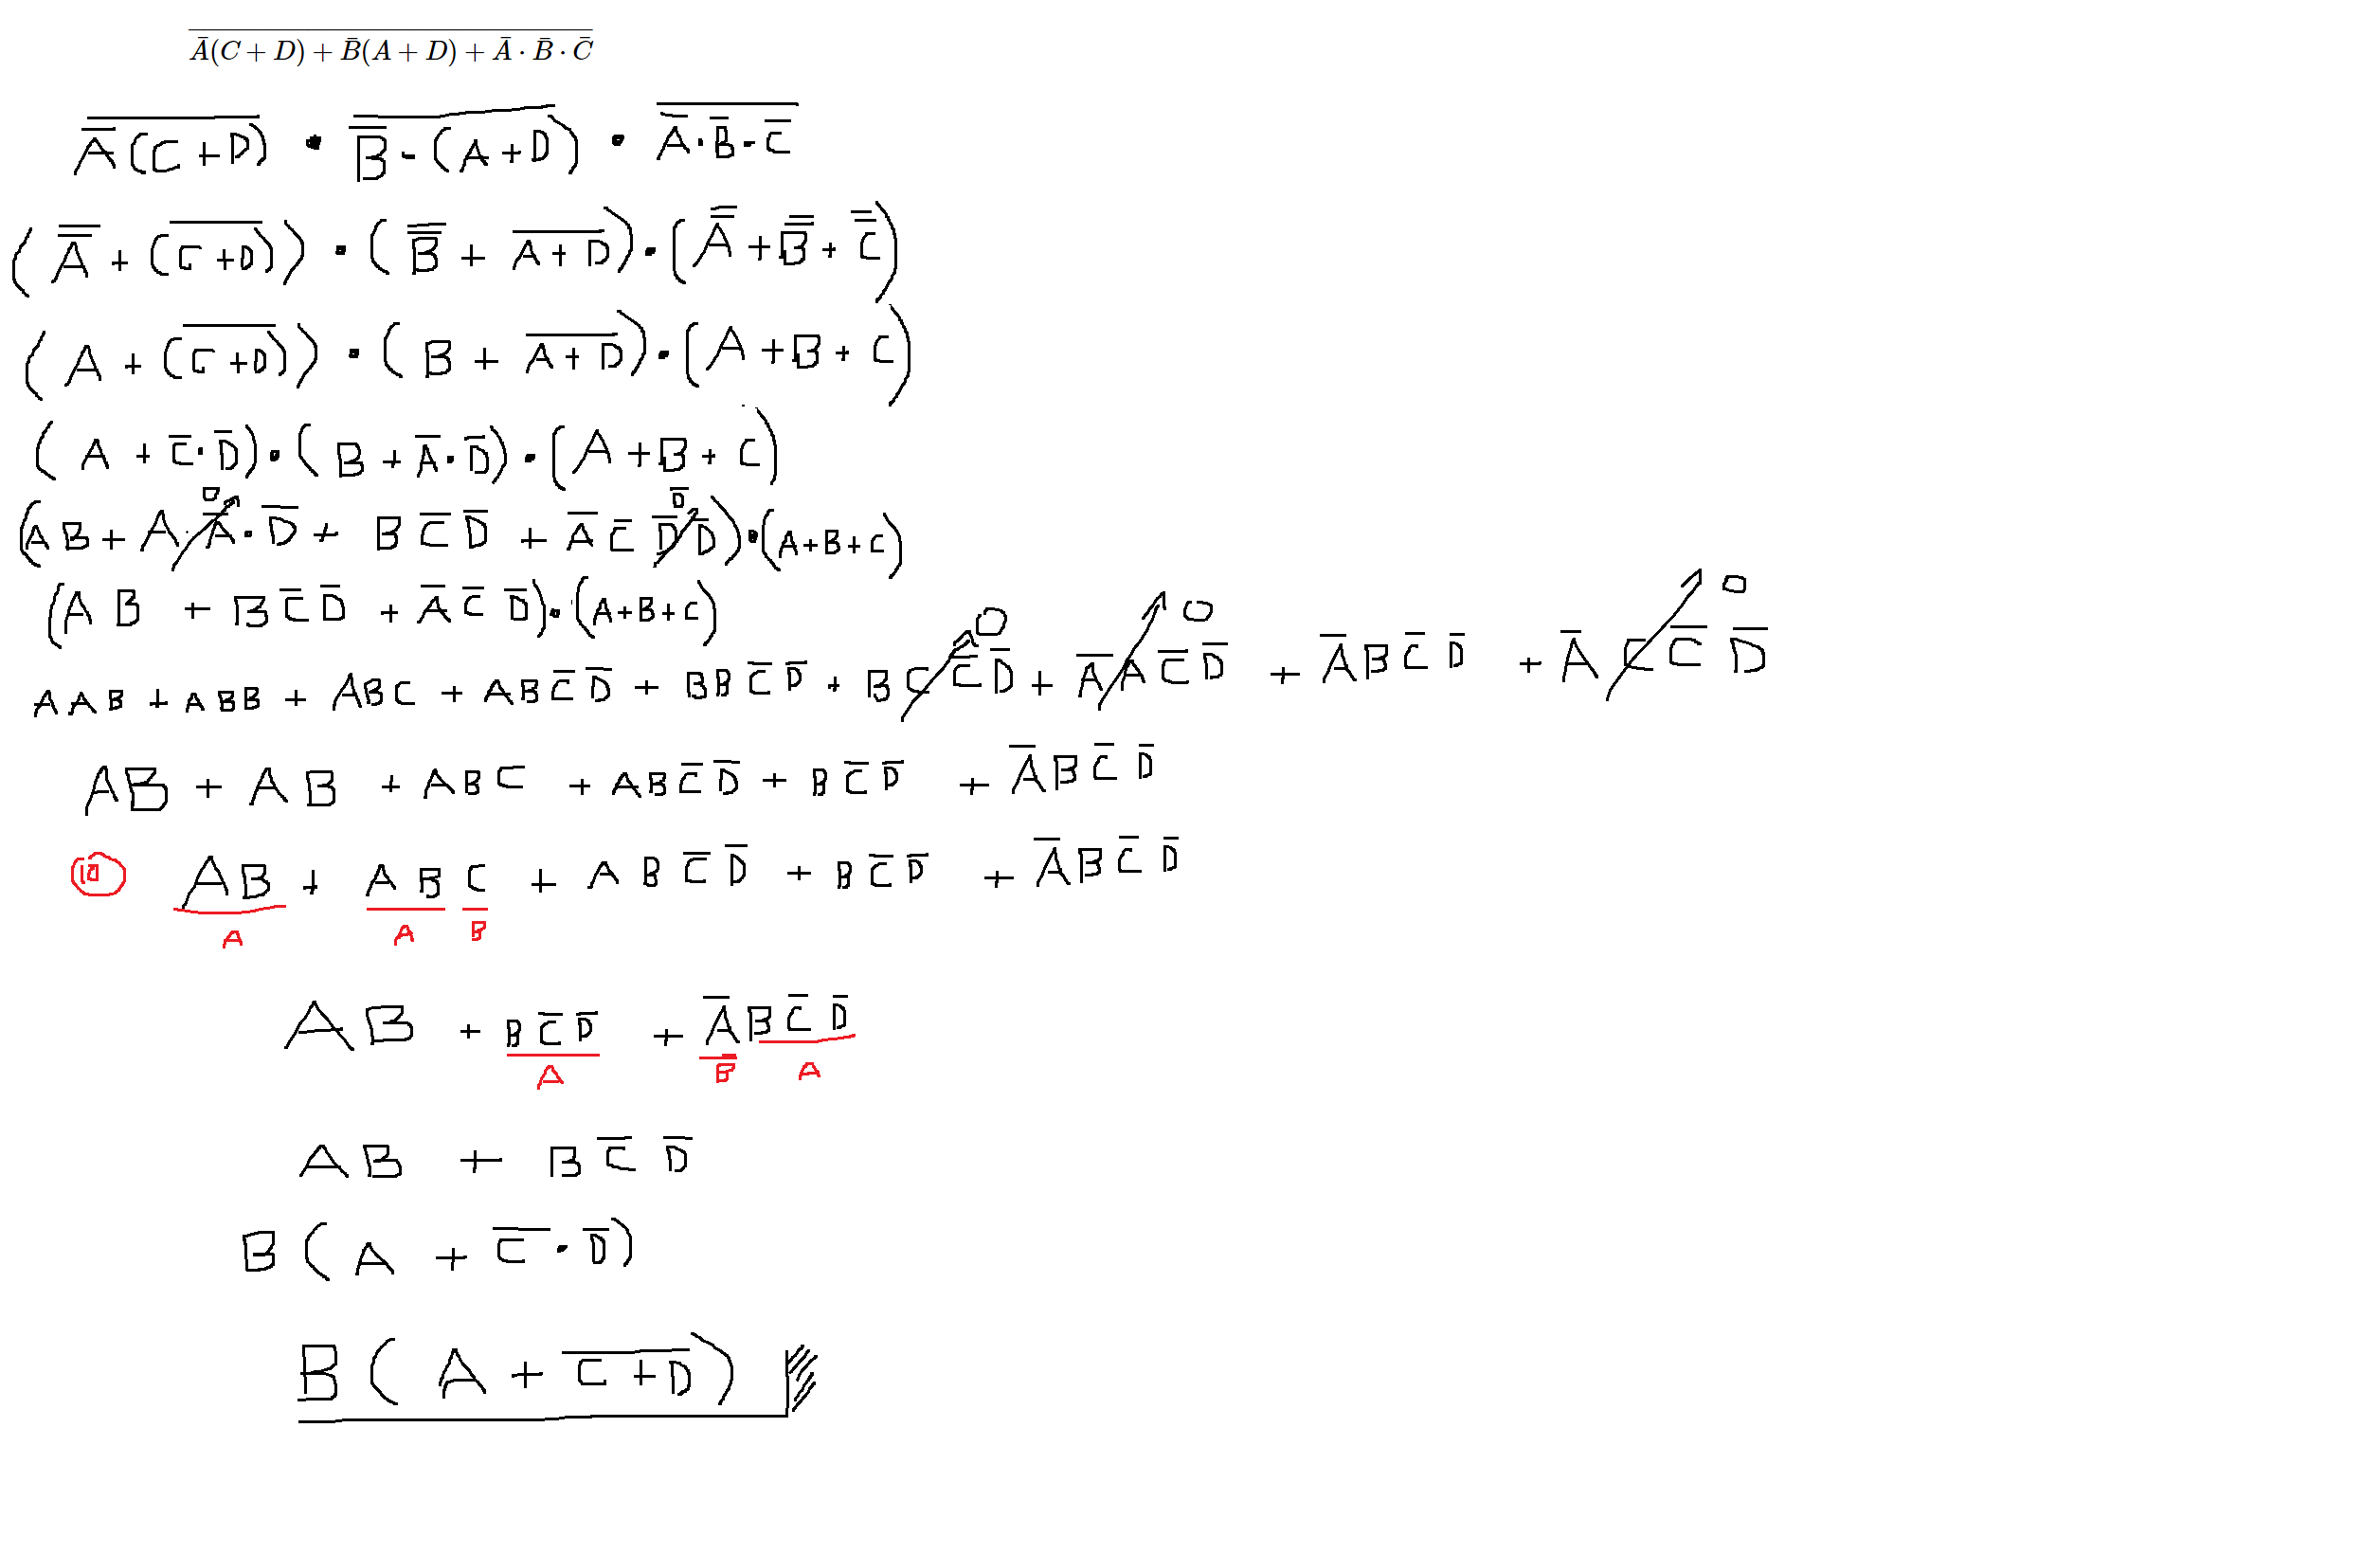 $\overline{\bar{A}(C + D) + \bar{B}(A + D) + \bar{A} \cdot \bar{B} \cdot \bar{C}}$
$\overline{\bar{A}(C + D)} \cdot \overline{\bar{B} \cdot (A + D)} \cdot \overline{\bar{A} \cdot \bar{B} \cdot \bar{C}}$
$(\bar{\bar{A}} + \overline{(C + D)}) \cdot (\bar{\bar{B}} + \overline{A + D}) \cdot (\bar{\bar{A}} + \bar{\bar{B}} + \bar{\bar{C}})$
$(A + \overline{(C + D)}) \cdot (B + \overline{A + D}) \cdot (A + B + C)$
$(A + \bar{C} \cdot \bar{D}) \cdot (B + \bar{A} \cdot \bar{D}) \cdot (A + B + C)$
$(AB + \cancelto{0}{A \cdot \bar{A}} \cdot \bar{D} + B\bar{C}\bar{D} + \bar{A}\bar{C}\cancelto{\bar{D}}{\bar{D}\bar{D}}) \cdot (A + B + C)$
$(AB + B\bar{C}\bar{D} + \bar{A}\bar{C}\bar{D}) \cdot (A + B + C)$
$AAB + ABB + ABC + AB\bar{C}\bar{D} + BB\bar{C}\bar{D} + \cancelto{0}{BC\bar{C}\bar{D}} + \cancelto{0}{\bar{A}A\bar{C}\bar{D}} + \bar{A}B\bar{C}\bar{D} + \cancelto{0}{\bar{A}C\bar{C}\bar{D}}$
$AB + AB + ABC + AB\bar{C}\bar{D} + B\bar{C}\bar{D} + \bar{A}B\bar{C}\bar{D}$
⑩ $AB + ABC + AB\bar{C}\bar{D} + B\bar{C}\bar{D} + \bar{A}B\bar{C}\bar{D}$
A A B
$AB + B\bar{C}\bar{D} + \bar{A}B\bar{C}\bar{D}$
A $\bar{B}$ A
$AB + B\bar{C}\bar{D}$
$B(A + \bar{C} \cdot \bar{D})$
$B(A + \overline{C + D})$